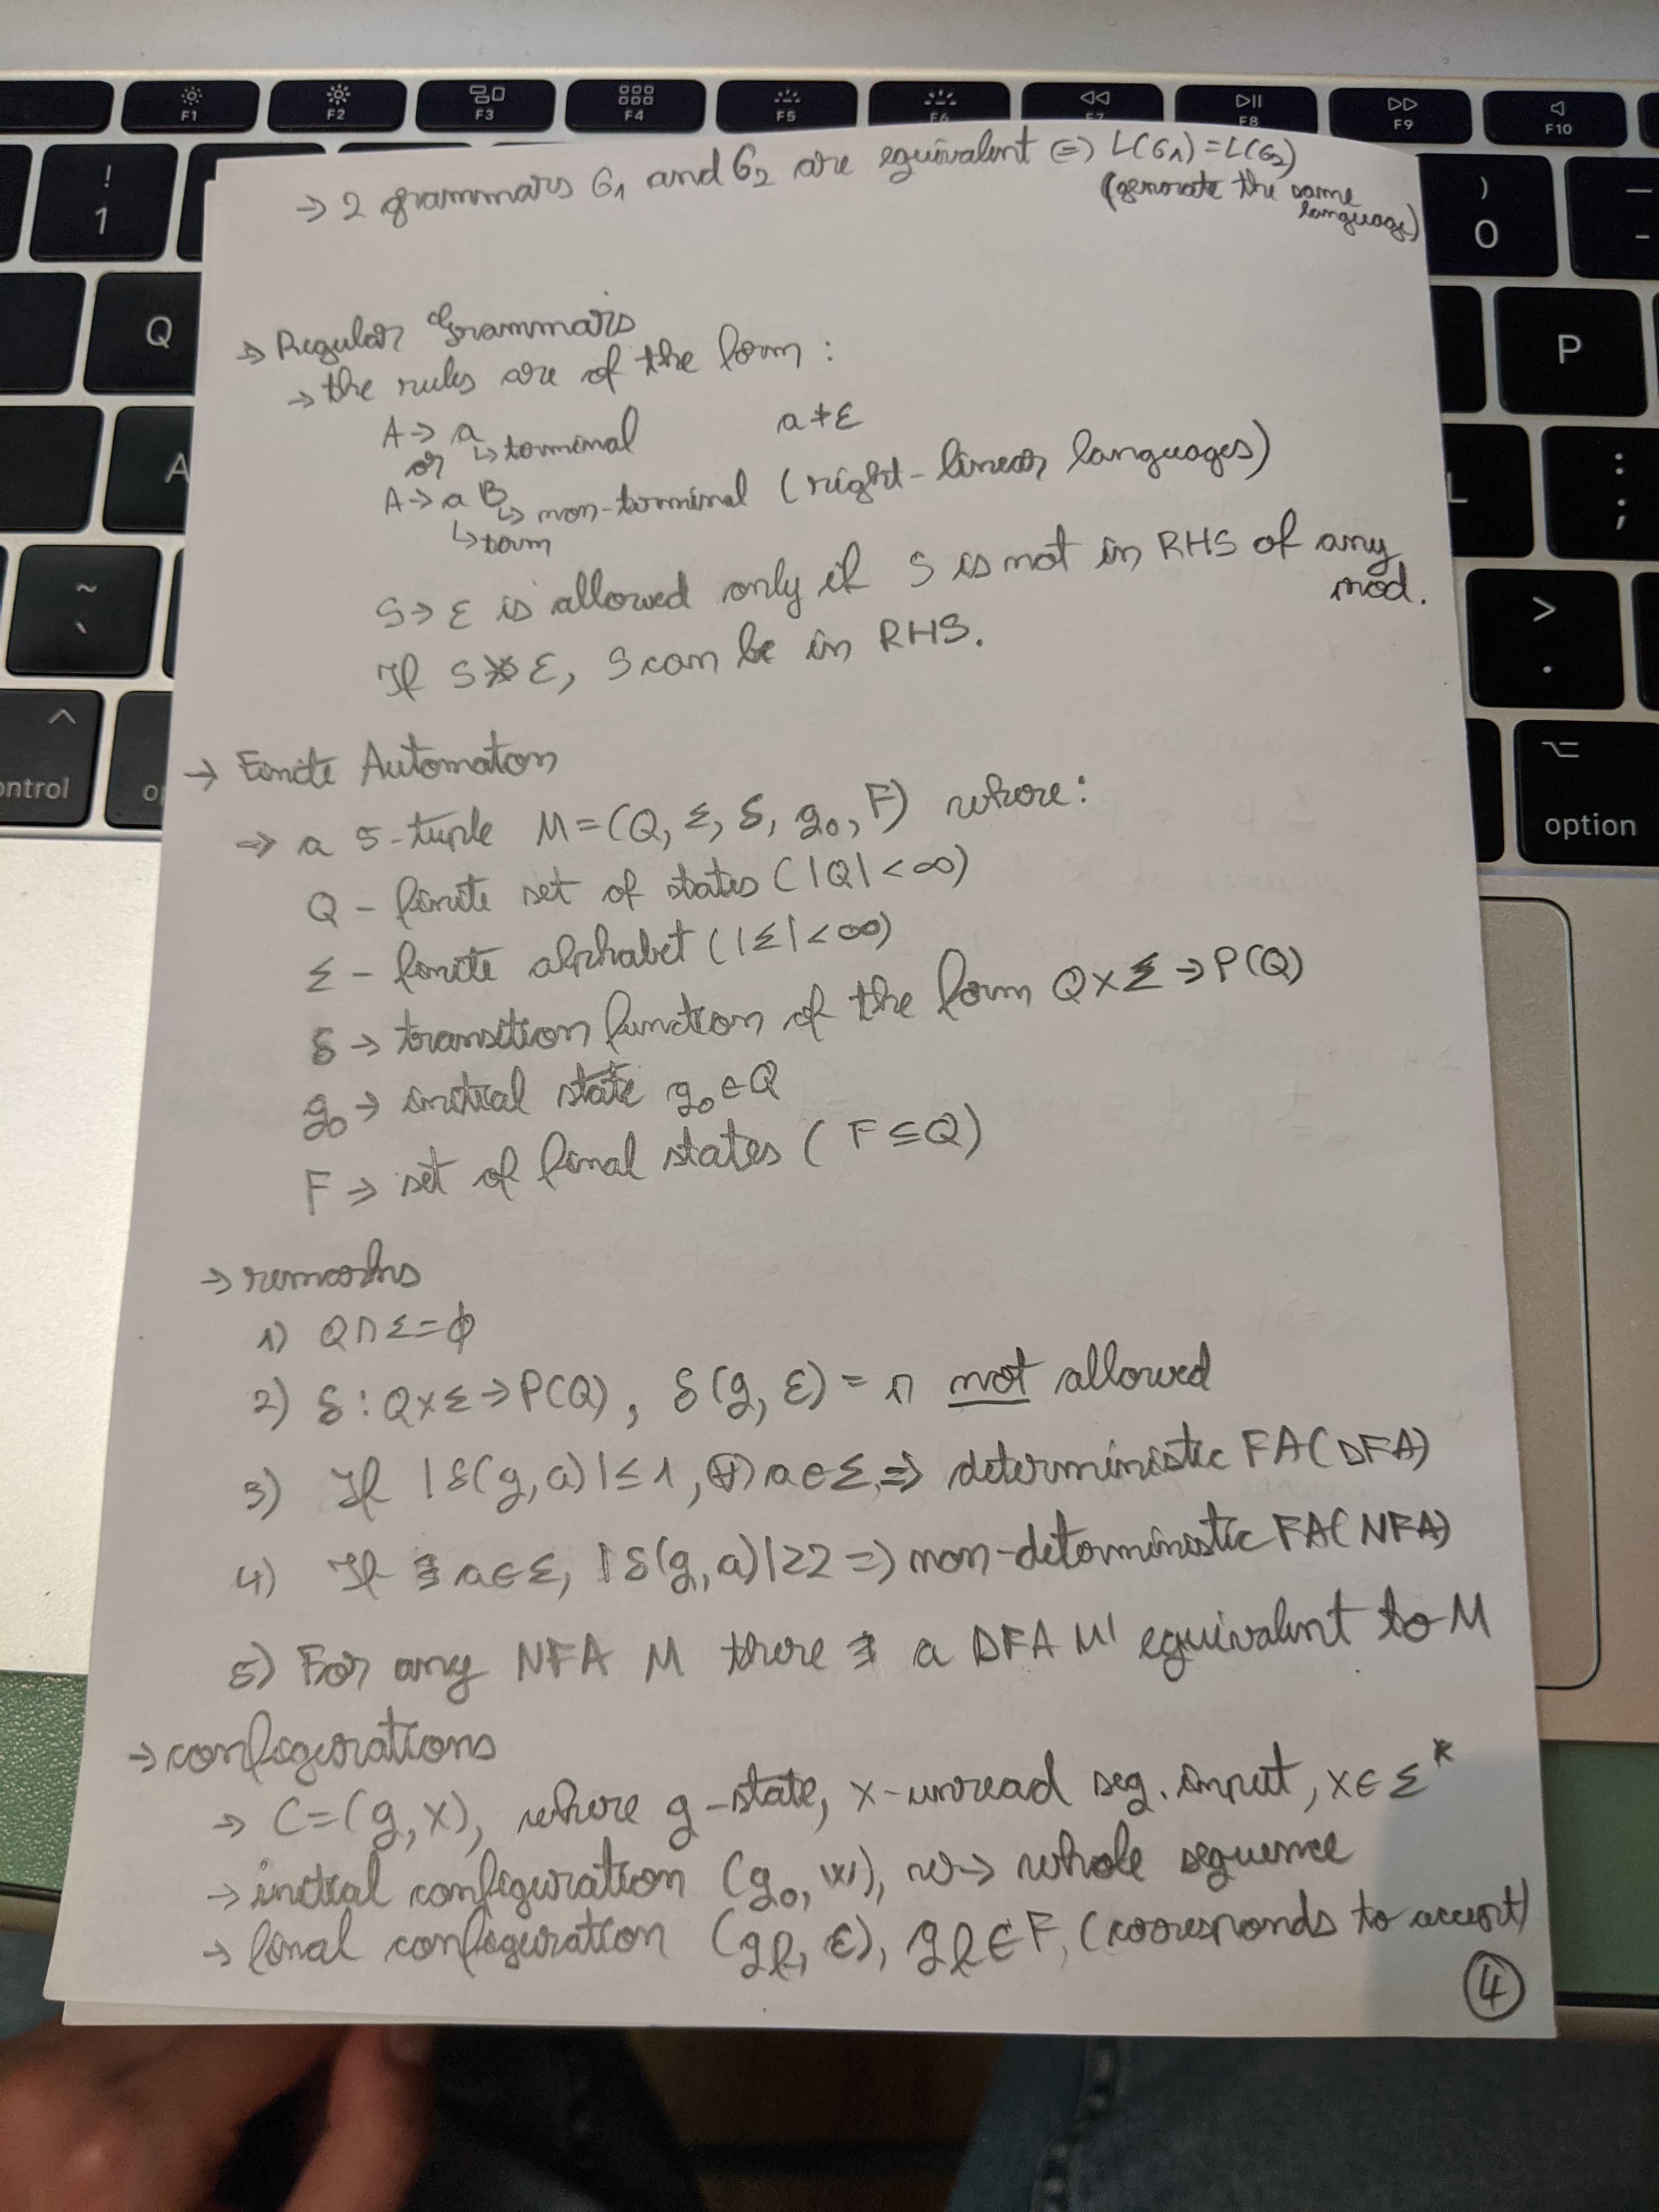 F1
F2
F3
F4
F5
F6
F7
F8
F9
F10
!
1
)
0
Q
P
A
L
:
;
~
`
>
.
control
option
→ 2 grammars G1 and G2 are equivalent (=) L(G1)=L(G2)
(generate the same
language)
→ Regular Grammars
→ the rules are of the form :
A → a
↳ terminal a ≠ ε
or
A → a B
↳ non-terminal (right-linear languages)
↳ term
S → ε is allowed only if S is not in RHS of any
prod.
If S ↛ ε, S can be in RHS.
→ Finite Automaton
→ a 5-tuple M=(Q, Σ, δ, q0, F) where:
Q - finite set of states (|Q|<∞)
Σ - finite alphabet (|Σ|<∞)
δ → transition function of the form Q×Σ→P(Q)
q0 → initial state q0∈Q
F → set of final states (F⊆Q)
→ remarks
1) Q∩Σ=ϕ
2) δ:Q×Σ→P(Q), δ(q, ε) = p not allowed
3) If |δ(q,a)|≤1, (∀) a∈Σ => deterministic FA(DFA)
4) If ∃ a∈Σ, |δ(q,a)|≥2 => non-deterministic FA(NFA)
5) For any NFA M there ∃ a DFA M' equivalent to M
→ configurations
→ C=(q,x), where q-state, x-unread seq. input, x∈Σ*
→ initial configuration (q0, w), w→ whole sequence
→ final configuration (qf, ε), qf∈F, (corresponds to accept)
4